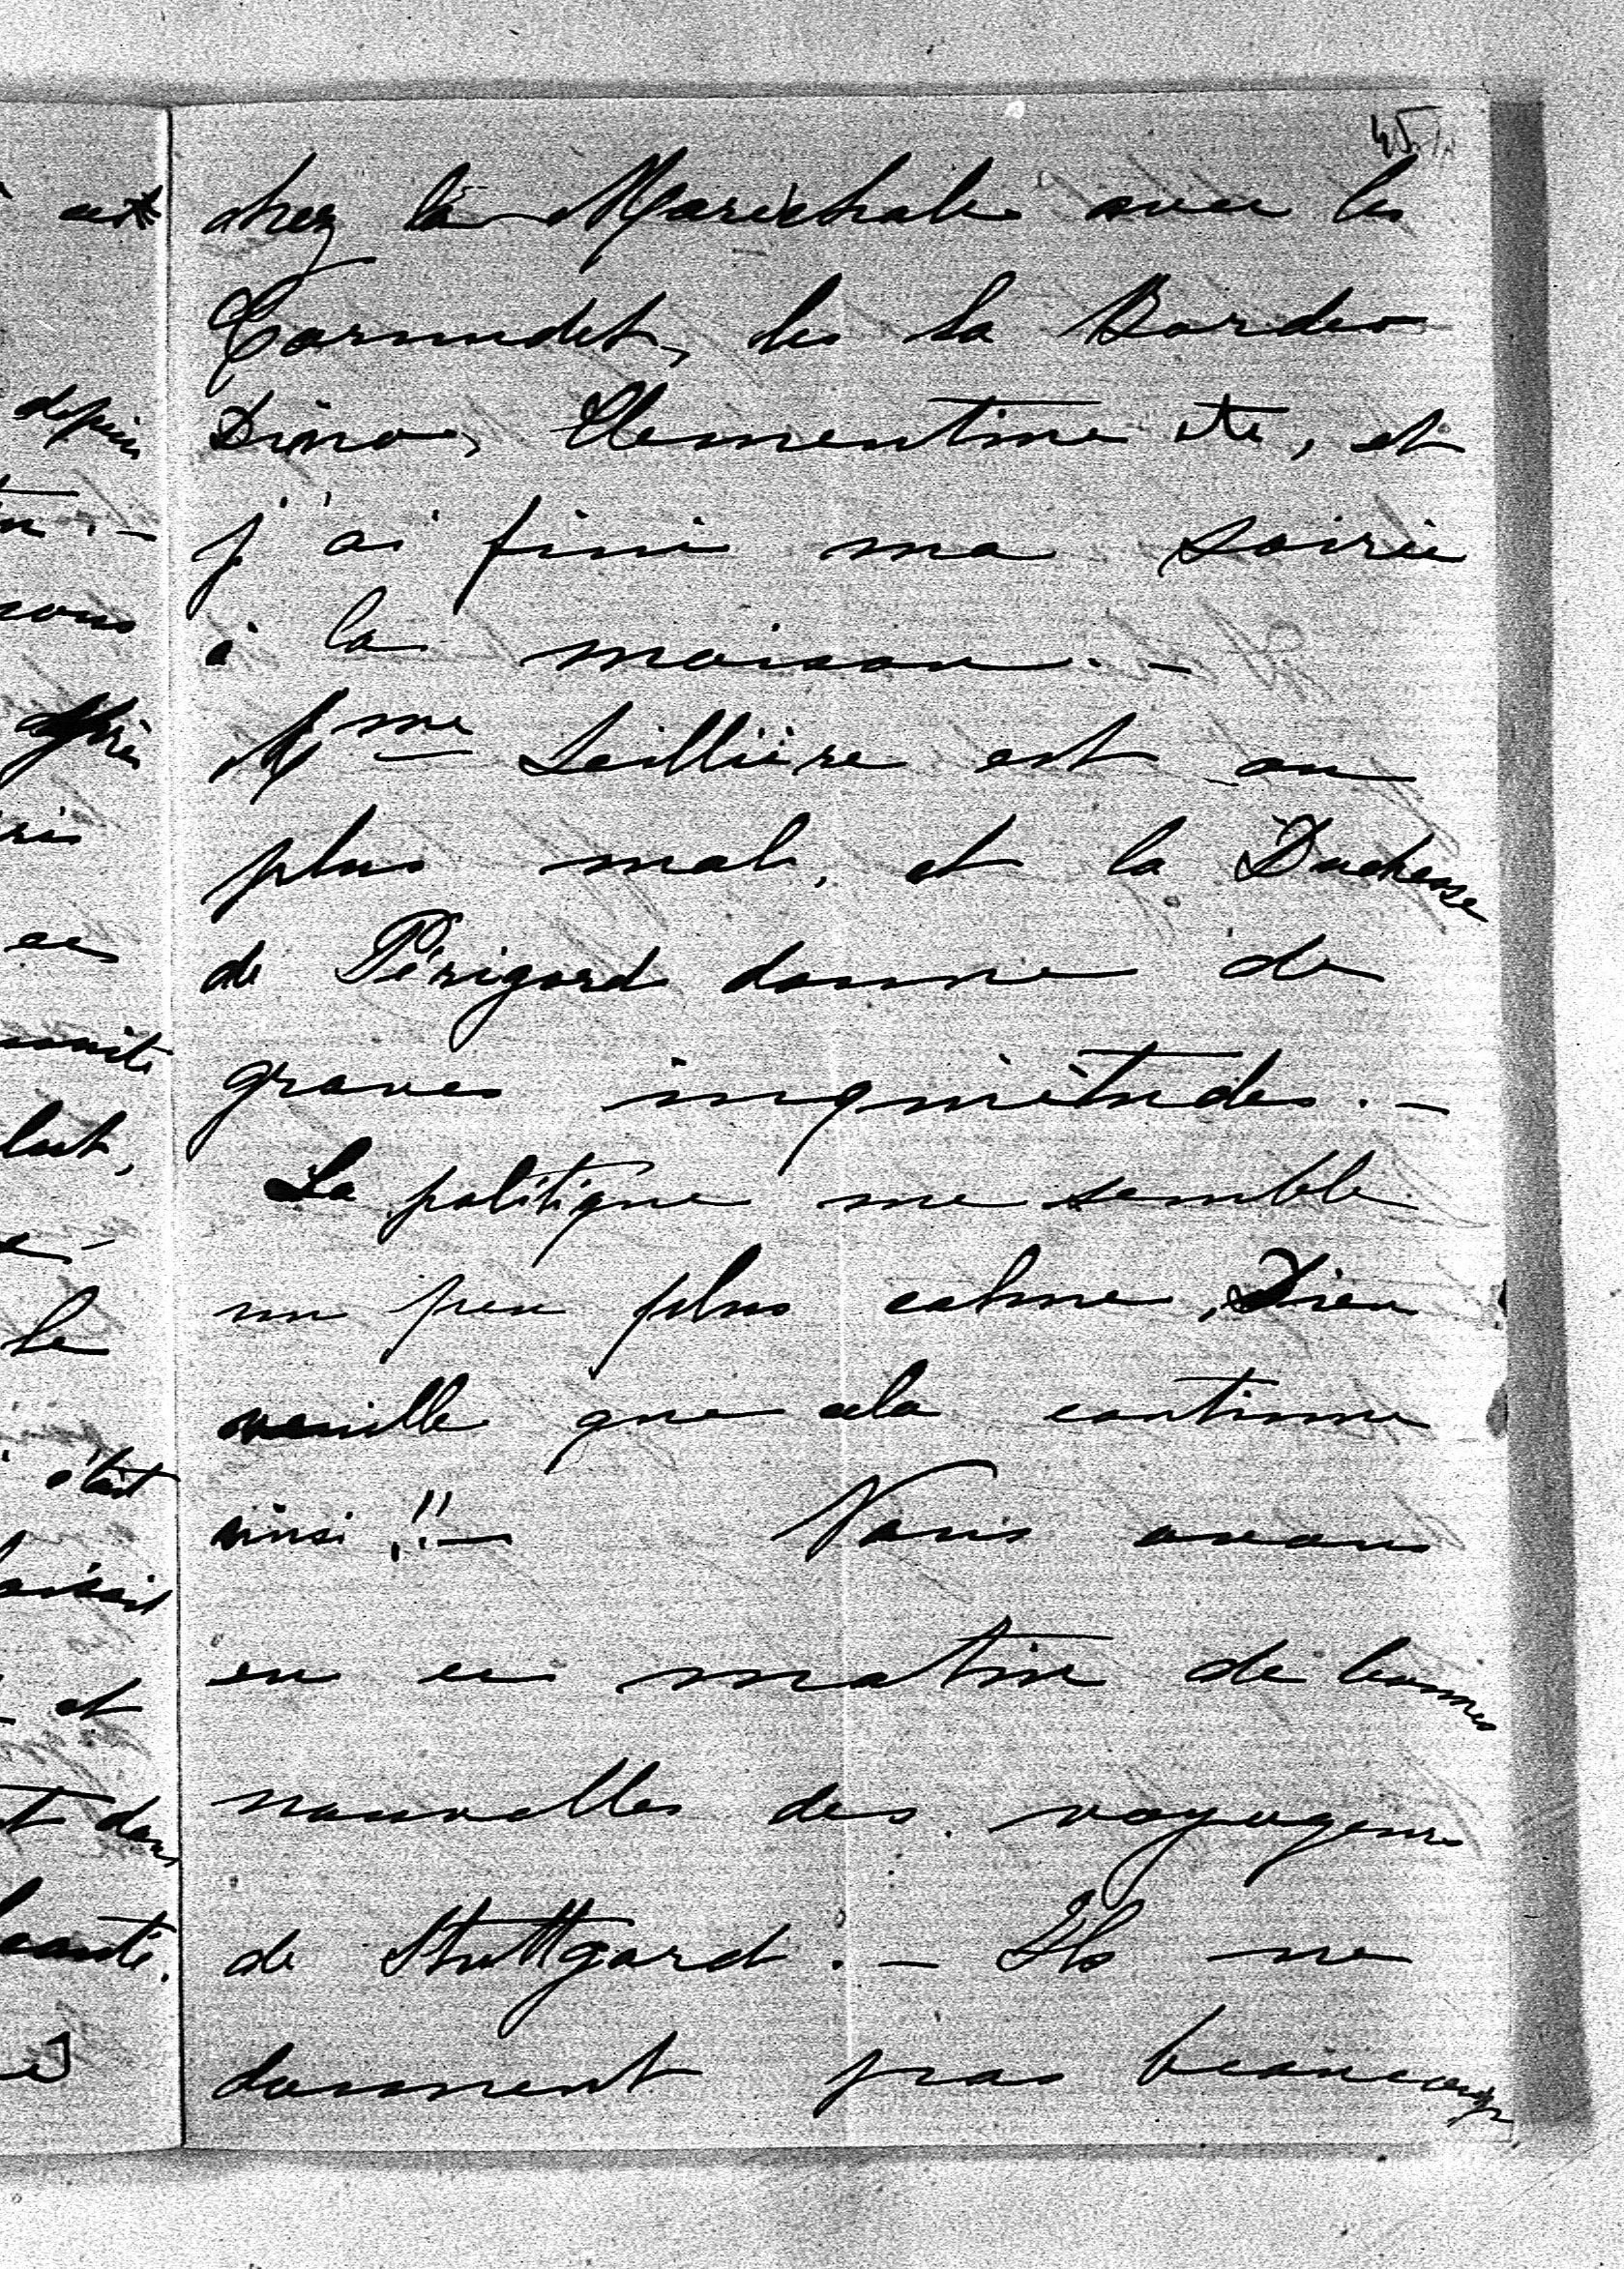 chez la Maréchale avec les
Cornudet, les La Bordes
Dino, Clementine etc, et
j'ai fini ma soirée
à la maison. -
Mme Seillière est au
plus mal, et la Duchesse
de Périgord donne de
graves inquiètudes. -
La politique me semble
un peu plus calme, Dieu
veuille que cela continue
ainsi !! - Nous avons
eu ce matin de bonnes
nouvelles des voyageurs
de Stuttgard. - Ils ne
donnent pas beaucoup